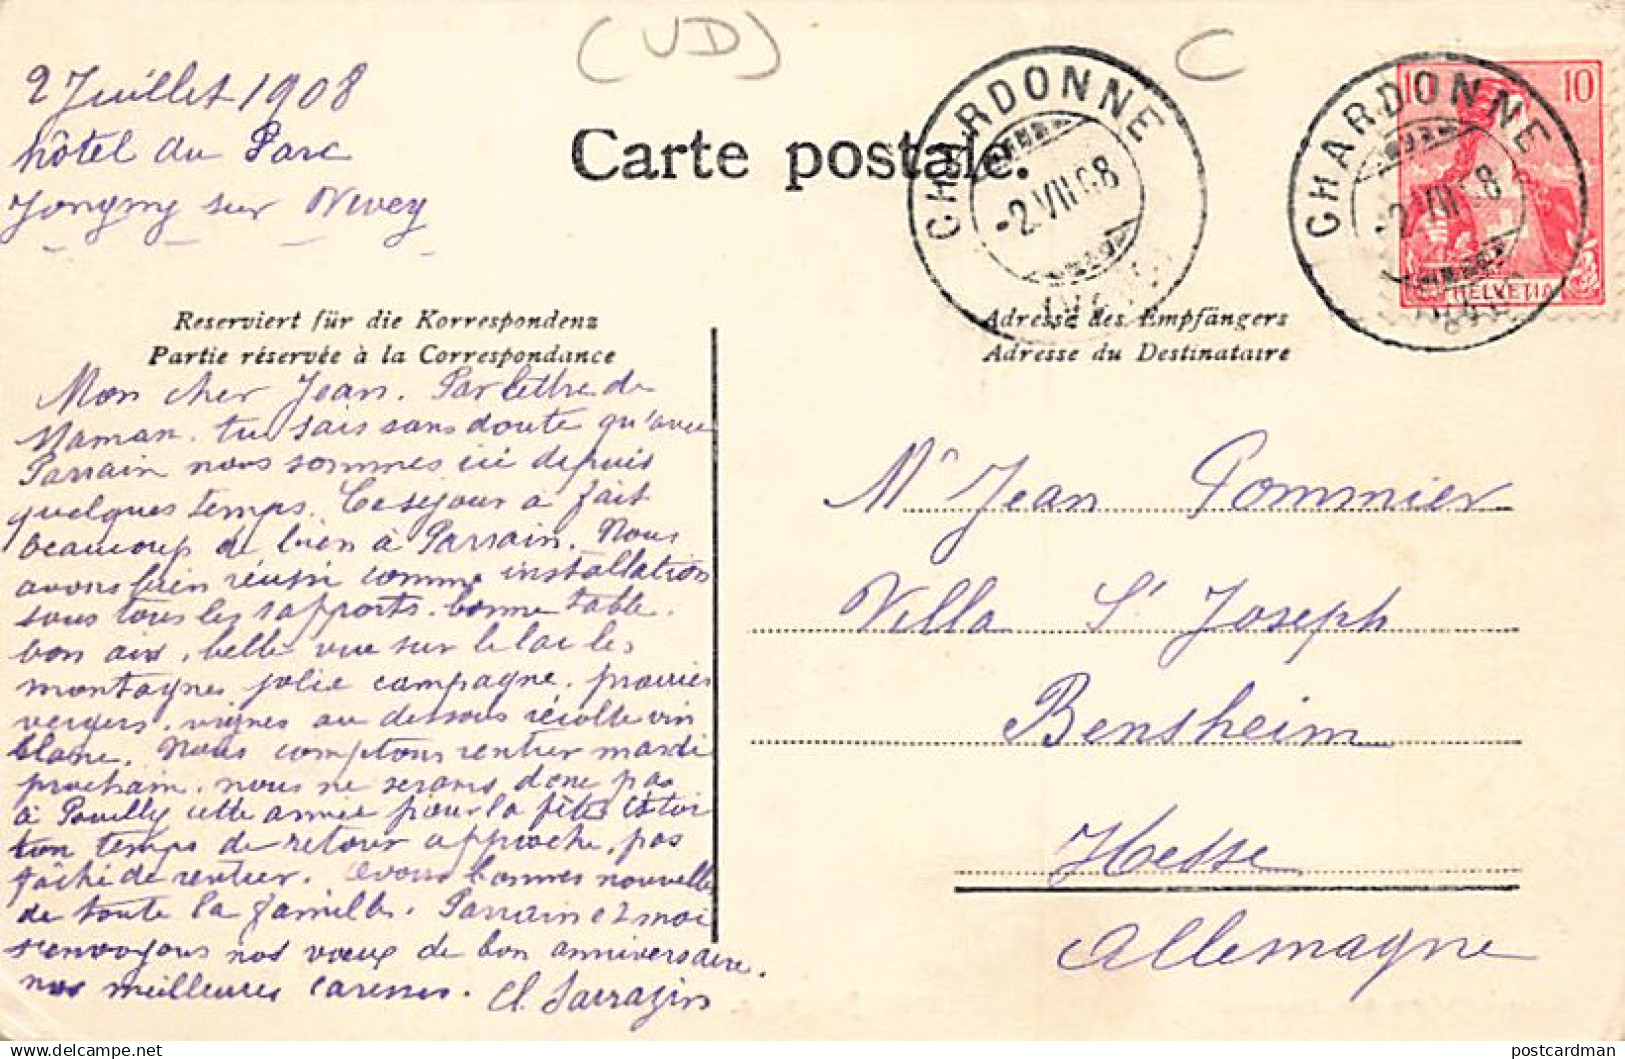 (VD)
C
2 Juillet 1908
hôtel du Parc
Jongny sur Vevey
Carte postale.
CHARDONNE
-2.VII.08
CHARDONNE
-2.VII.08
10
HELVETIA
Reserviert für die Korrespondenz
Partie réservée à la Correspondance
Adresse des Empfängers
Adresse du Destinataire
Mon cher Jean. Par lettre de
Maman. tu sais sans doute qu'avec
Parrain nous sommes ici depuis
quelques temps. Ce séjour a fait
beaucoup de bien à Parrain. Nous
avons bien réussi comme installation
sous tous les rapports. bonne table.
bon air, belle vue sur le lac les
montagnes jolie campagne. prairies
vergers, vignes au dessous récolte vin
blanc. Nous comptons rentrer mardi
prochain. nous ne serons donc pas
à Pouilly cette année pour la fête et toi
ton temps de retour approche, pas
fâché de rentrer. Avons bonnes nouvelles
de toute la famille. Parrain et moi
t'envoyons nos vœux de bon anniversaire.
nos meilleures caresses. Cl. Sarrazin
Mr Jean Pommier
Villa St Joseph
Bensheim
Hesse
Allemagne
delcampe.net
postcardman